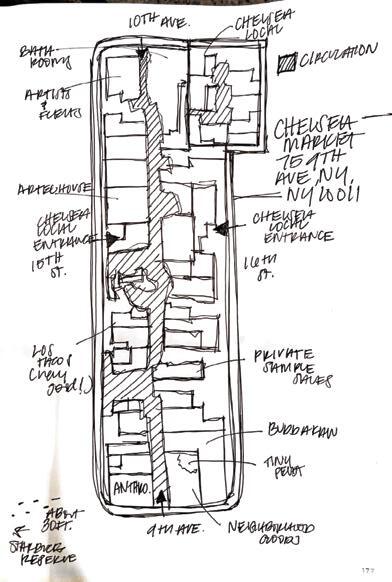 10TH AVE.
CHELSEA
LOCAL
BATH-
ROOMS
CIRCULATION
ARTISTS
& FLEAS
CHELSEA
MARKET
75 9TH
AVE, NY,
NY 10011
ARTECHOUSE
CHELSEA
LOCAL
ENTRANCE
15TH
ST.
CHELSEA
LOCAL
ENTRANCE
16TH
ST.
LOS
TACOS
(Very
good!)
PRIVATE
SAMPLE
SALES
BUDDAKAN
TINY
ANTHRO.
ABOUT
30FT.
STARBUCKS
RESERVE
9TH AVE.
NEIGHBORHOOD
GOODS
177